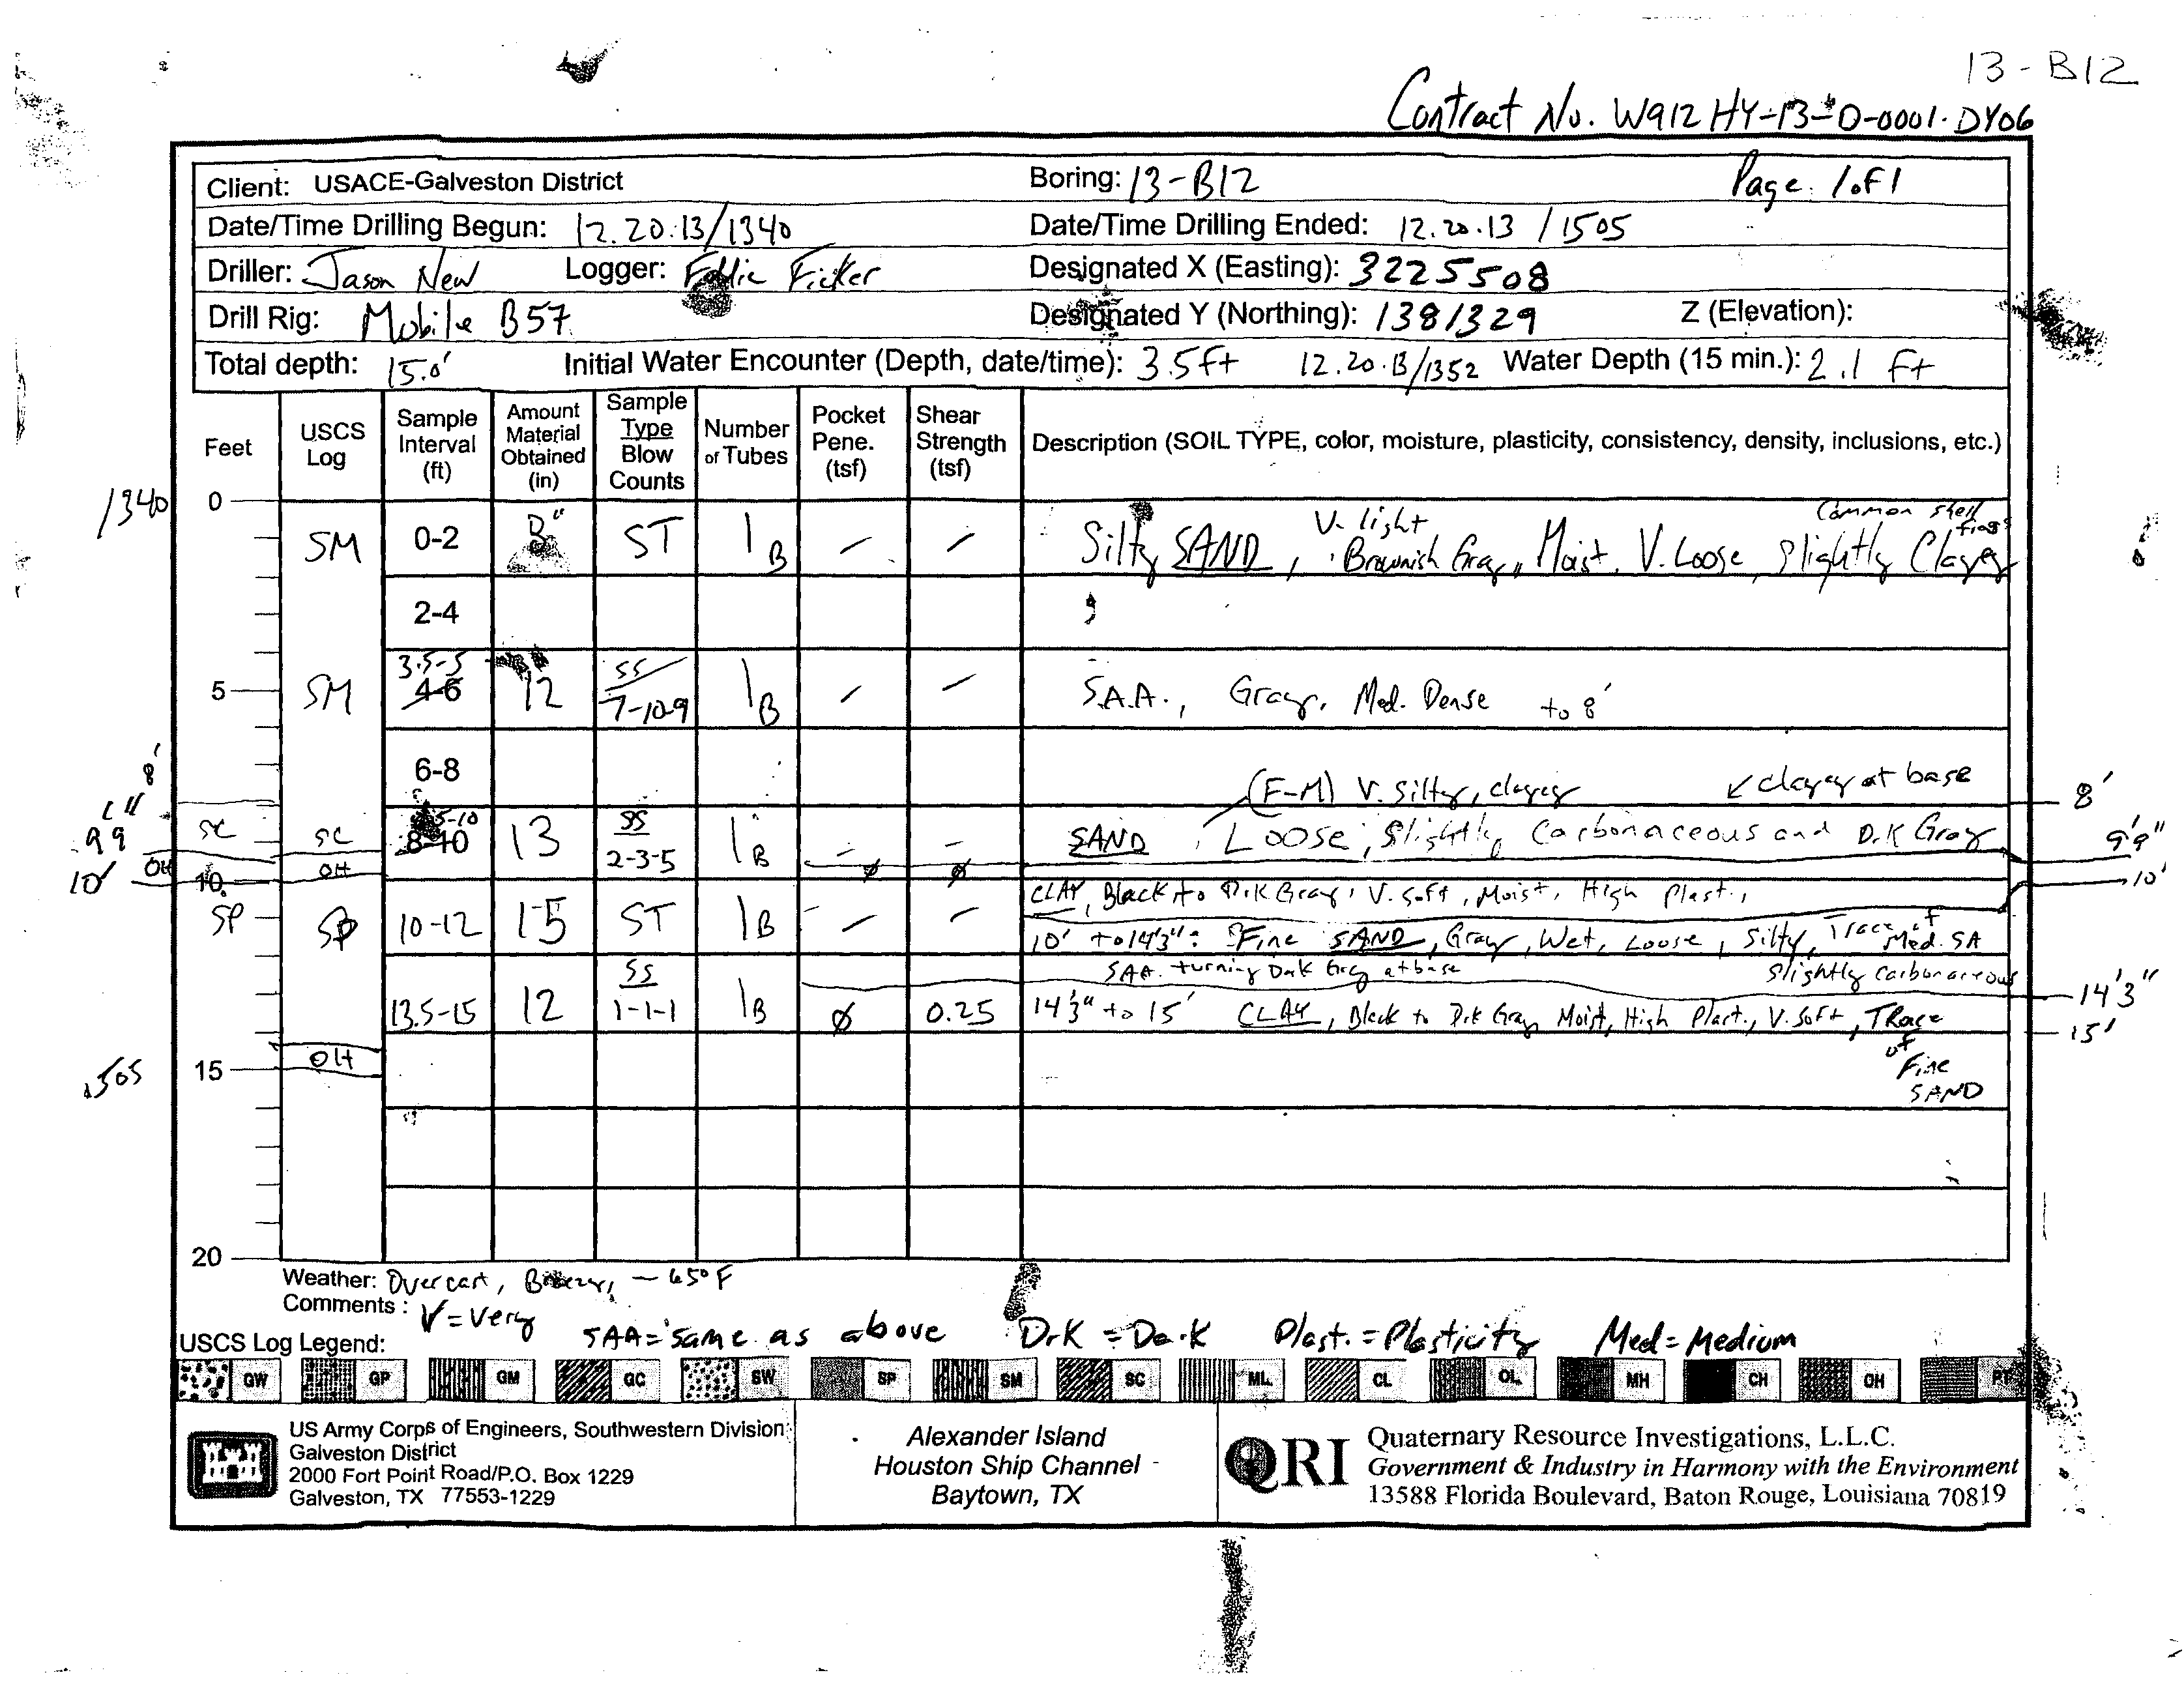 13-B12
Contract No. W912HY-13-D-0001-DY06
Client: USACE-Galveston District Boring: 13-B12 Page 1 of 1
Date/Time Drilling Begun: 12.20.13/1340 Date/Time Drilling Ended: 12.20.13 / 1505
Driller: Jason New Logger: Ficker Designated X (Easting): 3225508
Drill Rig: Mobile B57 Designated Y (Northing): 1381329 Z (Elevation):
Total depth: 15.0' Initial Water Encounter (Depth, date/time): 3.5 ft 12.20.13/1352 Water Depth (15 min.): 2.1 ft
Feet USCS Log Sample Interval (ft) Amount Material Obtained (in) Sample Type Blow Counts Number of Tubes Pocket Pene. (tsf) Shear Strength (tsf) Description (SOIL TYPE, color, moisture, plasticity, consistency, density, inclusions, etc.)
1340 0
V. light Common shell frags
SM 0-2 ST 1B - - Silty SAND, Brownish Gray, Moist, V. Loose, Slightly Clayey
2-4
3.5-5 SS
5 SM 4-6 12 7-10-9 1B - - S.A.A., Gray, Med. Dense to 8'
6-8
8' (F-M) V. Silty, clayey clayey at base 8'
SC SC 8-10 13 SS 2-3-5 1B - - SAND, Loose, Slightly Carbonaceous and Drk Gray 9'9"
10' OH 10 OH ø ø 10'
CLAY, Black to Drk Gray, V. Soft, Moist, High Plast.,
SP SP 10-12 15 ST 1B - - 10' to 14'3": Fine SAND, Gray, Wet, Loose, Silty, Trace of Med. SA
SAA. turning Dark Gray at base Slightly carbonaceous
13.5-15 12 SS 1-1-1 1B ø 0.25 14'3" to 15' CLAY, Black to Drk Gray Moist, High Plast., V. Soft, Trace of Fine SAND
14'3"
15'
1505 15 OH
20
Weather: Overcast, Breezy, ~65°F
Comments: V=Very SAA=same as above Drk = Dark Plast. = Plasticity Med = Medium
USCS Log Legend:
GW GP GM GC SW SP SM SC ML CL OL MH CH OH PT
US Army Corps of Engineers, Southwestern Division
Galveston District
2000 Fort Point Road/P.O. Box 1229
Galveston, TX 77553-1229
Alexander Island
Houston Ship Channel
Baytown, TX
QRI
Quaternary Resource Investigations, L.L.C.
Government & Industry in Harmony with the Environment
13588 Florida Boulevard, Baton Rouge, Louisiana 70819